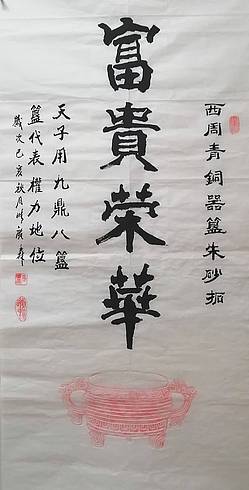 富貴榮華
西周青銅器簋朱砂拓
天子用九鼎八簋
簋代表權力地位
歲次己亥秋月